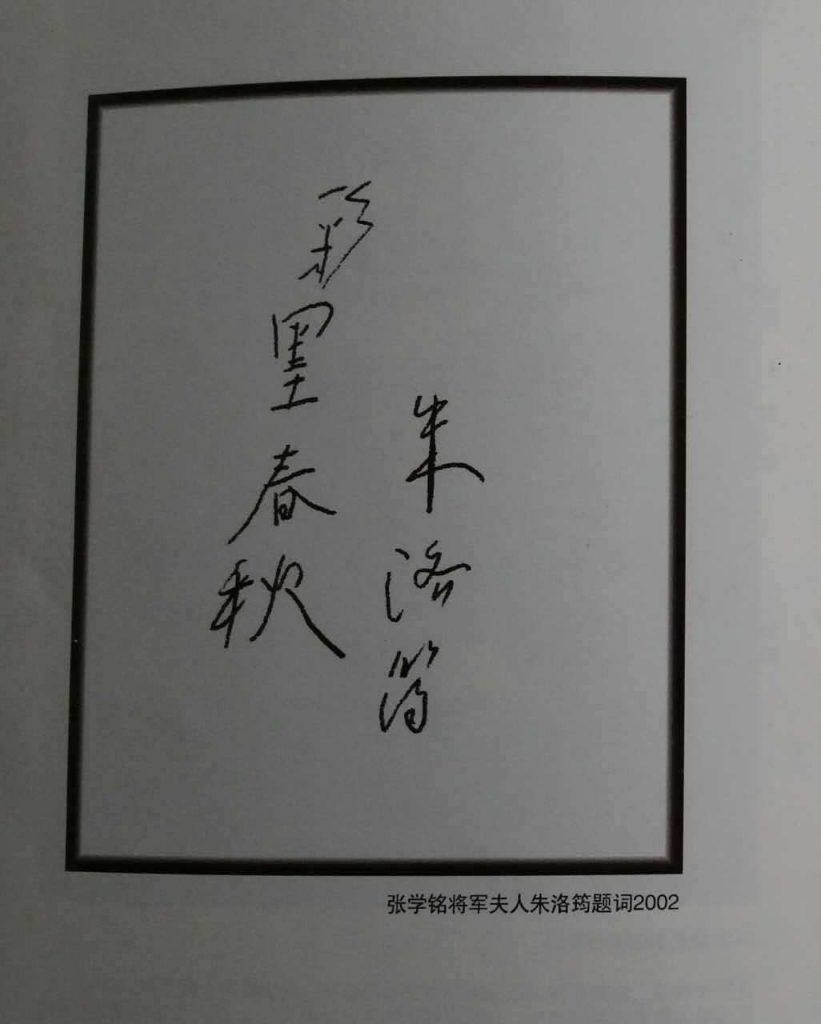 彩墨春秋
朱洛筠
张学铭将军夫人朱洛筠题词2002